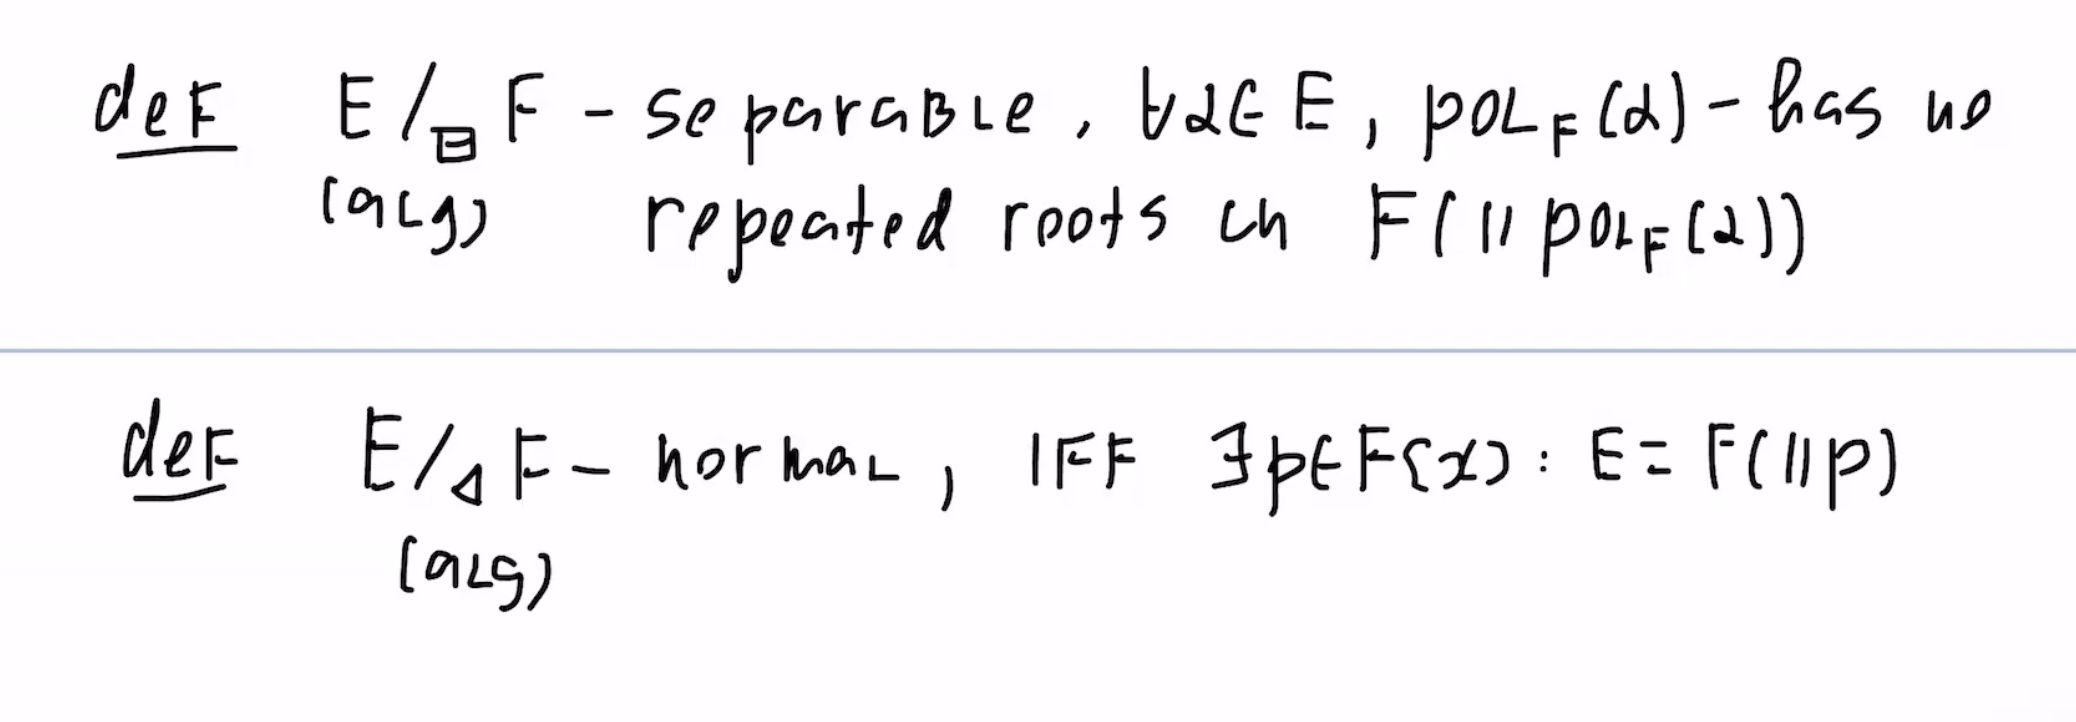 def E/⊟ F - separable, ∀α∈E, pol_F(α) - has no
(alg) repeated roots in F(||pol_F(α))
def E/◁ F - normal, IFF ∃p∈F[x]: E = F(||p)
(alg)